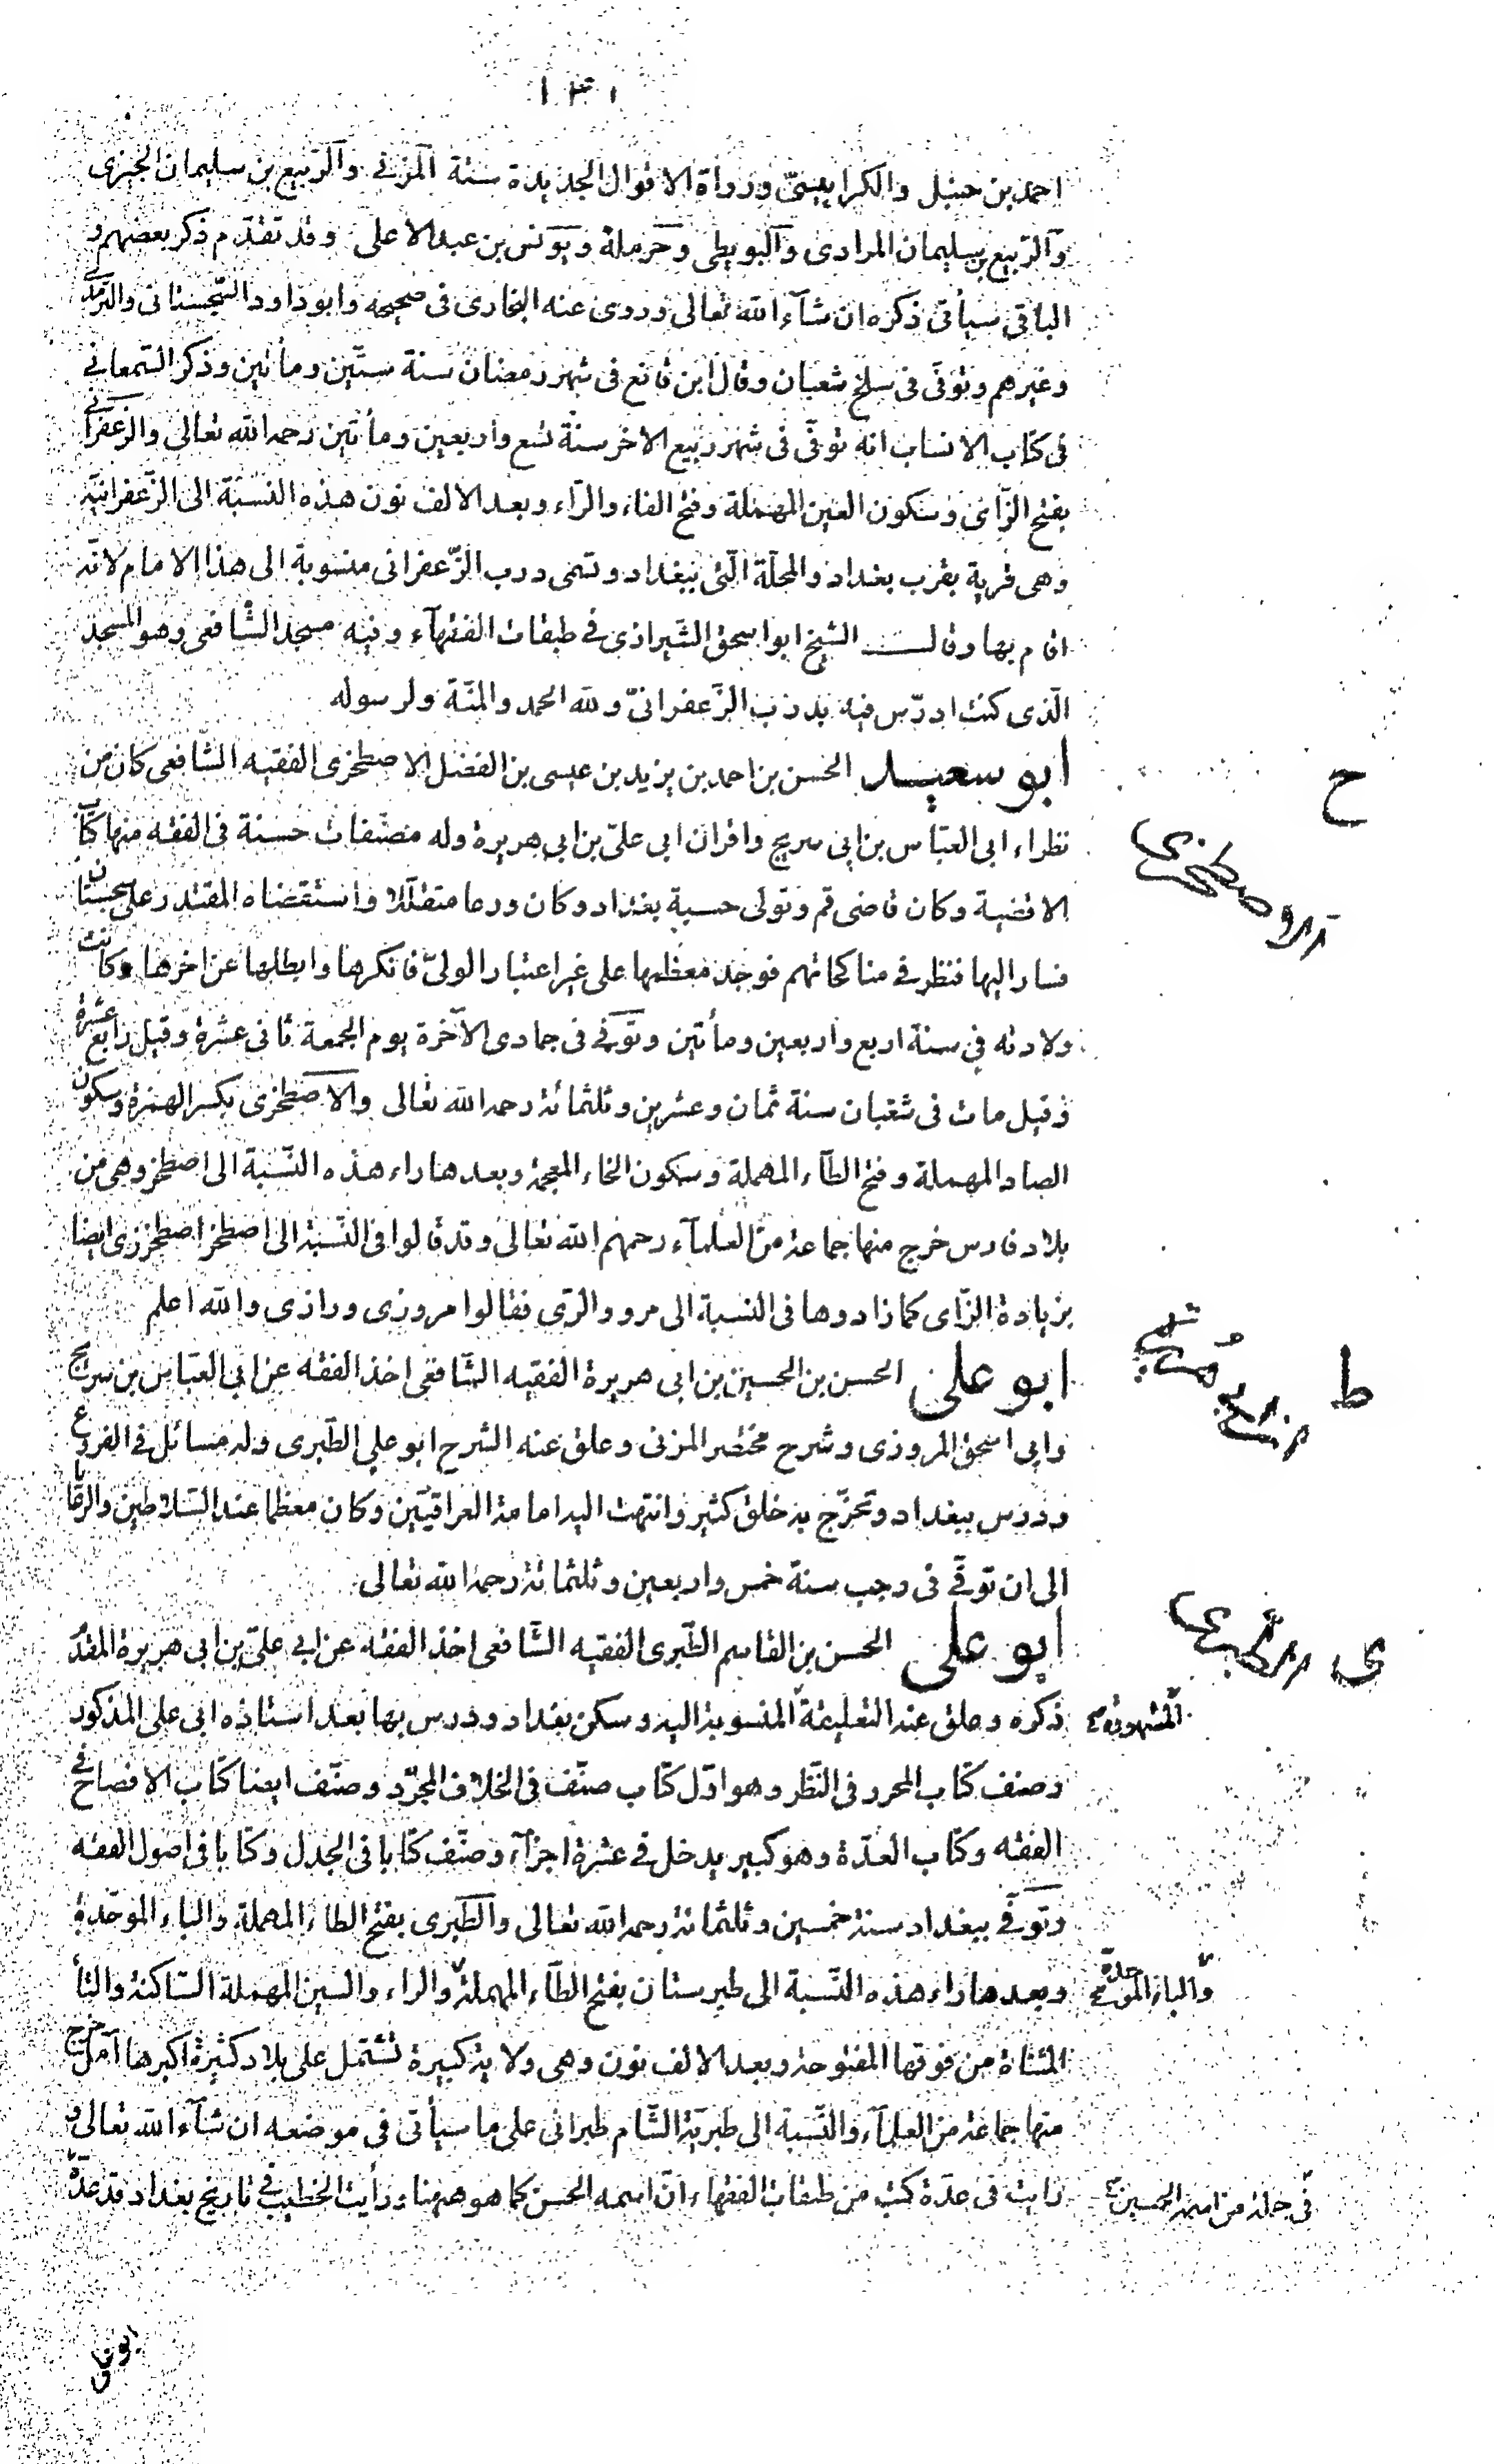 ١٣٠
احمد بن حنبل والكرابيسىّ ورواة الاقوال الجديدة ستة المزنى والرّبيع بن سليمان الجيزى
والرّبيع بن سليمان المرادى والبويطى وحرملة ويونس بن عبد الاعلى وقد تقدّم ذكر بعضهم و
الباقى سيأتى ذكره ان شآء الله تعالى وروى عنه البخارى فى صحيحه وابو داود السّجستانى والترمذى
وغيرهم وتوفّى فى سلخ شعبان وقال ابن قانع فى شهر رمضان سنة ستّين ومأتين وذكر السّمعانى
فى كتاب الانساب انه توفّى فى شهر ربيع الاخر سنة تسع واربعين ومأتين رحمه الله تعالى والزّعفرانى
بفتح الزّاى وسكون العين المهملة وفتح الفاء والرّاء وبعد الالف نون هذه النسبة الى الزّعفرانيّة
وهى قرية بقرب بغداد والمحلّة الّتى ببغداد وتسمى درب الزّعفرانى منسوبة الى هذا الامام لانّه
اقام بها وقال الشيخ ابو اسحق الشّيرازى فى طبقات الفقهآء وفيه مسجد الشّافعى وهو المسجد
الّذى كنت ادرّس فيه بدرب الزّعفرانىّ ولله الحمد والمنّة ولرسوله
ح
الاصطخرى
ابو سعيد الحسن بن احمد بن يزيد بن عيسى بن الفضل الاصطخرى الفقيه الشّافعى كان من
نظراء ابى العبّاس بن ابى سريج واقران ابى علىّ بن ابى هريرة وله مصنّفات حسنة فى الفقه منها كتاب
الاقضية وكان قاضى قم وتولى حسبة بغداد وكان ورعا متقلّلا واستقضاه المقتدر على سجستان
فسار اليها فنظر فى مناكحاتهم فوجد معظمها على غير اعتبار الولىّ فانكرها وابطلها عن اخرها وكانت
ولادته فى سنة اربع واربعين ومأتين وتوفّى فى جمادى الآخرة يوم الجمعة ثانى عشرة وقيل رابع عشرة
وقيل مات فى شعبان سنة ثمان وعشرين وثلثمائة رحمه الله تعالى والاصطخرى بكسر الهمزة وسكون
الصاد المهملة وفتح الطآء المهملة وسكون الخاء المعجمة وبعدها راء هذه النّسبة الى اصطخر وهى من
بلاد فارس خرج منها جماعة من العلمآء رحمهم الله تعالى وقد قالوا فى النّسبة الى اصطخر اصطخرزى ايضا
بزيادة الزّاى كما زادوها فى النسبة الى مرو والرّى فقالوا مروزى ورازى والله اعلم
ط
ابن ابى هريرة
ابو على الحسن بن الحسين بن ابى هريرة الفقيه الشّافعى اخذ الفقه عن ابى العبّاس بن سريج
وابى اسحق المروزى وشرح مختصر المزنى وعلق عنه الشرح ابو على الطّبرى وله مسائل فى الفروع
ودرس ببغداد وتخرّج به خلق كثير وانتهت اليه امامة العراقيّين وكان معظما عند السّلاطين والرّعايا
الى ان توفّى فى رجب سنة خمس واربعين وثلثمائة رحمه الله تعالى
ى الطّبرى
ابو على الحسن بن القاسم الطّبرى الفقيه الشّافعى اخذ الفقه عن ابى علىّ بن ابى هريرة المقدّم
ذكره وعلق عنه التعليقة المنسوبة اليه وسكن بغداد ودرس بها بعد استاذه ابى على المذكور
المشهورة صح
وصنف كتاب المحرر فى النّظر وهو اوّل كتاب صنّف فى الخلاف المجرّد وصنّف ايضا كتاب الافصاح فى
الفقه وكتاب العدّة وهو كبير يدخل فى عشرة اجزآء وصنّف كتابا فى الجدل وكتابا فى اصول الفقه
وتوفّى ببغداد سنة خمسين وثلثمائة رحمه الله تعالى والطّبرى بفتح الطاء المهملة والباء الموحّدة
وبعدها راء هذه النّسبة الى طبرستان بفتح الطّآء المهملة والراء والسين المهملة السّاكنة والتآء
والباء الموحدة صح
المثناة من فوقها المفتوحة وبعد الالف نون وهى ولاية كبيرة تشتمل على بلاد كثيرة اكبرها آمل خرج
منها جماعة من العلمآء والنّسبة الى طبريّة الشّام طبرانى على ما سيأتى فى موضعه ان شآء الله تعالى و
رايت فى عدّة كتب من طبقات الفقهاء انّ اسمه الحسن كما هو ههنا ورأيت الخطيب فى تاريخ بغداد قد عدّه
فى جملة من اسمه الحسين صح